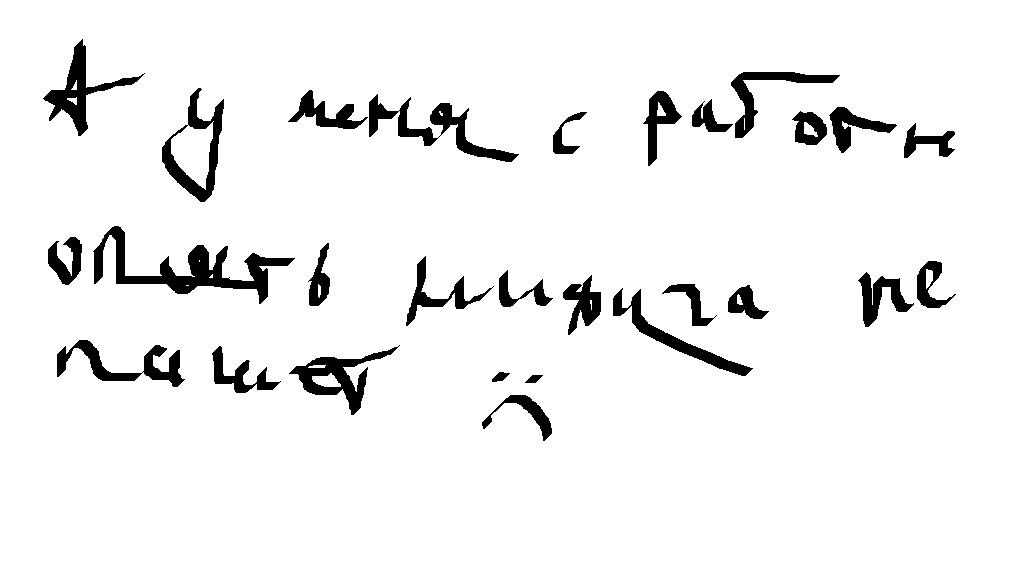 А у меня с работы
опять нифига не
пашет :(